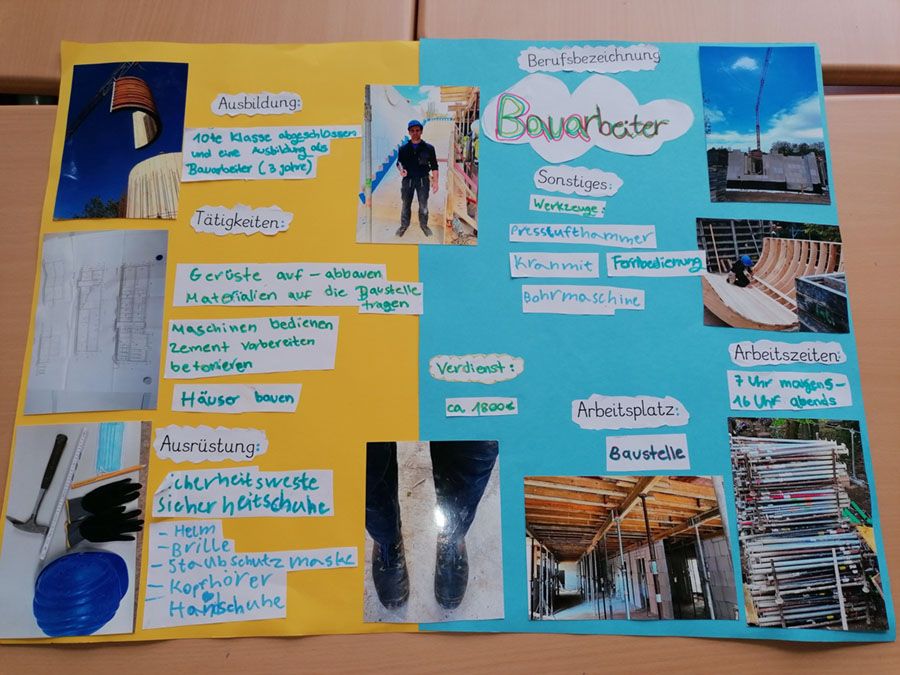 Ausbildung:
10te Klasse abgeschlossen
und eine Ausbildung als
Bauarbeiter (3 Jahre)
Tätigkeiten:
Gerüste auf-abbauen
Materialien auf die Baustelle
tragen
Maschinen bedienen
Zement vorbereiten
betonieren
Häuser bauen
Ausrüstung:
Sicherheitsweste
Sicherheitschuhe
- Helm
- Brille
- Staubschutzmaske
- Kopfhörer
- Handschuhe
Berufsbezeichnung
Bauarbeiter
Sonstiges:
Werkzeuge:
Presslufthammer
Kran mit Fernbedienung
Bohrmaschine
Verdienst:
ca. 1800€
Arbeitsplatz:
Baustelle
Arbeitszeiten:
7 Uhr morgens -
16 Uhr abends